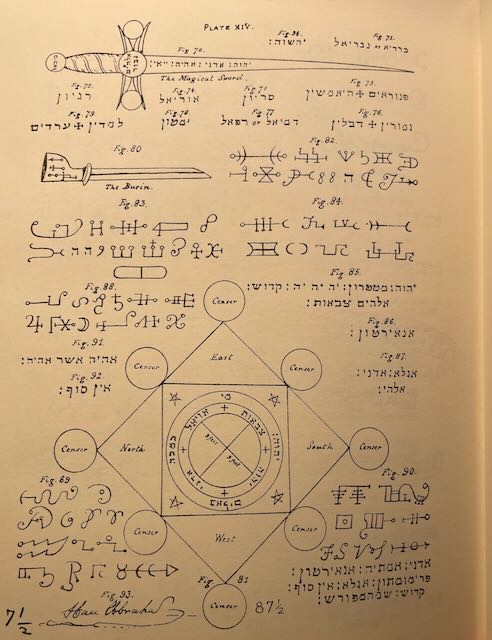 PLATE XIV.
Fig. 94.
יהשוה:
Fig. 71.
כרדיא or גבריאל
Fig. 70.
יהוה: אדני: אהיה: ייאי:
The Magical Sword.
Fig. 72.
רגיון
Fig. 74.
אוריאל
Fig. 75
סריון
Fig. 73.
פנוראים + היאמשין
Fig. 79
למדין + ערדים
Fig. 78.
ימטון
Fig. 77
דמיאל or רפאל
Fig. 76.
נמורין + דבלין
Fig. 80
The Burin.
Fig. 82.
Fig. 83.
Fig. 84.
Fig. 85.
יהוה: מטטרון: יה: יה: יה: קדוש:
אלהים צבאות:
Fig. 88.
Censer
Fig. 86.
אנאירטון:
Fig. 91.
אהיה אשר אהיה:
Fig. 92.
אין סוף:
Censer
East
Censer
Fig. 87.
אגלא: אדני:
אלהי:
Censer
North
South
Censer
Fig. 89
Fig. 90.
Censer
West
Censer
אדני: אמתיה: אנאירטון:
פרימומתון: אגלא: אין סוף:
קדוש: שמהמפורש:
Fig. 81
Censer
87½
Fig. 93.
7½